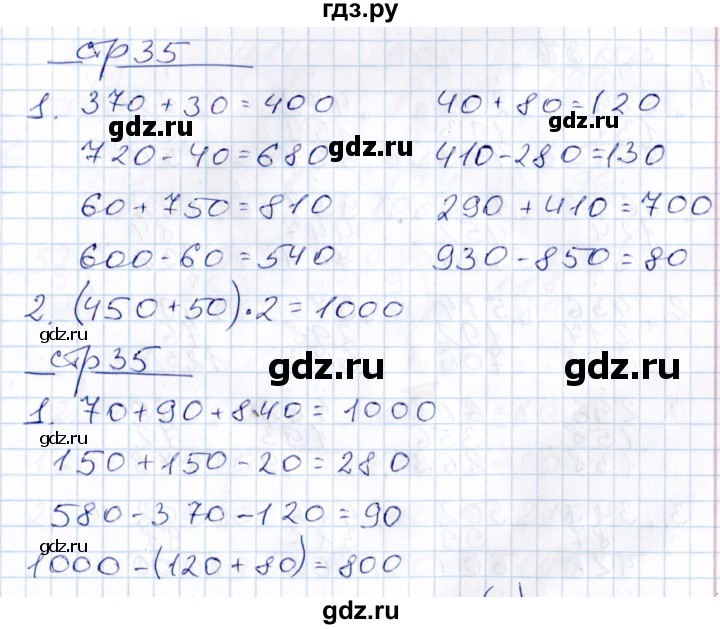 гдз.ру
стр 35
1. 370 + 30 = 400 40 + 80 = 120
gdz.ru gdz.ru
720 - 40 = 680 410 - 280 = 130
gdz.ru
60 + 750 = 810 290 + 410 = 700
600 - 60 = 540 930 - 850 = 80
2. (450 + 50) · 2 = 1000
gdz.ru
стр 35
gdz.ru gdz.ru
1. 70 + 90 + 840 = 1000
150 + 150 - 20 = 280
580 - 370 - 120 = 90
gdz.ru
1000 - (120 + 80) = 800
gdz.ru